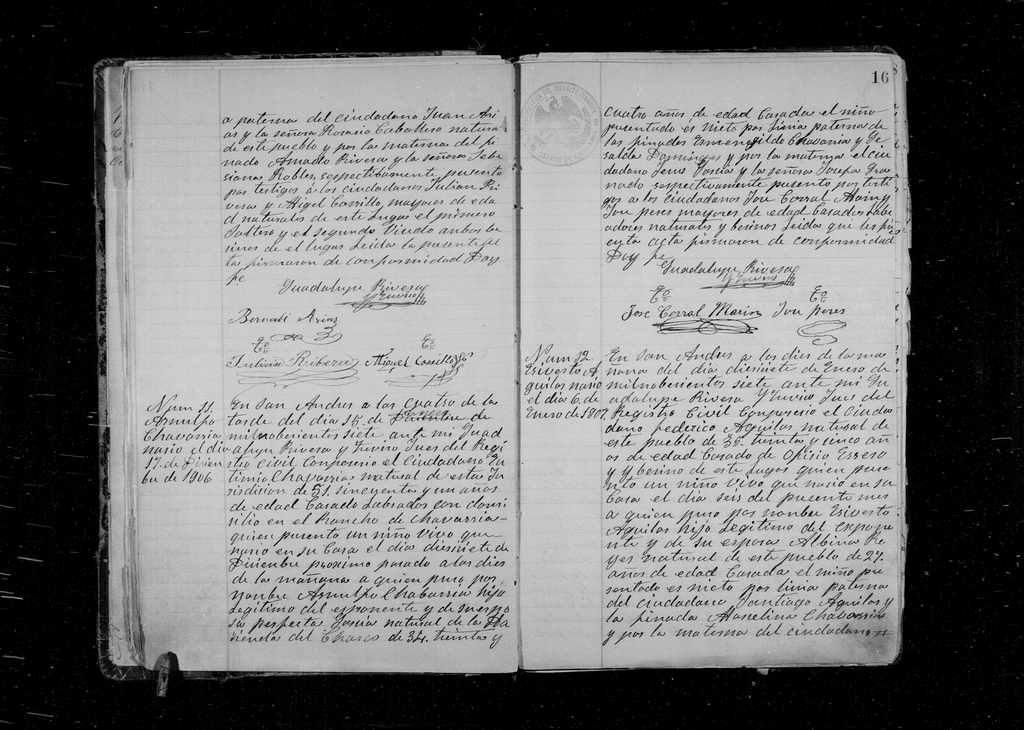 a paterna del ciudadano Juan Ari
as y la señora Rosario Caballero natura
de este pueblo y por la materna del fi
nado Amado Rivera y la señora Feb
siana Robles, sospectibamente, presento
por testigos á los ciudadanos Julian Ri
vera y Migel Carrillo, mayores de eda
d naturales de este Lugar el primero
Soltero y el segundo Viudo anbos be
sinos de el lugar Leida la presente
ta firmaron de conformidad Doy
fe
Guadalupe Rivera
y Trevino
Bernabé Arias
To To
Julian Ribera Miguel Carrillo
Num 11.
Arnulfo
Chavarria
nasio el dia
17. de Disien
bre de 1906
En San Andres a las cuatro de la
tarde del dia 15 de
milnobesientos siete ante mi Guad
alupe Rivera y Trevino Jues del Regi
stro Civil Conparesio el Ciudadano Eu
timio Chavarria natural de esta Ju
risdision de 51. sincuenta y un años
de edad Casado Labrador con domi
silio en el Rancho de Chavarria
quien presento un niño vivo que
nasio en su Casa el dia diesisiete de
Disienbre procsimo pasado a las dies
de la mañana a quien puso por
nonbre Arnulfo Chabarria hijo
Legitimo del esponente y de su espo
sa perfecta Garsia natural de la Ha
sienda del Charco de 34. treinta y
16
cuatro años de edad Casada el niño
presentado es nieto por linia paterna de
los finados Ermenejildo Chavarria y
Domingues y por la materna el ciu
dadano Jesus Garsia y la señora Josefa Gra
nado sospectivamente presento por testi
gos a los ciudadanos Jose Corral Marin y
Jose peres mayores de edad Casados Lab
radores naturales y besinos Leida que les fue
esta acta firmaron de conformidad
Doy fe
Guadalupe Rivera
y Trevino
To To
Jose Corral Marin Jose peres
Num 12
Eriverto A
guilar nasio
el dia 6. de
Enero de 1907.
En San Andres a las dies de la ma
ñana del dia diesisiete de Enero de
milnobesientos siete ante mi Gu
adalupe Rivera y Trevino Jues del
Registro Civil Conparesio el Ciuda
dano federico Aguilar natural de
este pueblo de 35. treinta y cinco añ
os de edad Casado de Ofisio Errero
y besino de este Lugar quien prese
nto un niño vivo que nasio en su
Casa el dia seis del presente mes
a quien puso por nonbre Eriverto
Aguilar hijo Legitimo del esponen
te y de su esposa Albina Re
yes natural de este pueblo de 27.
años de edad Casada el niño pre
sentado es nieto por linia paterna
del ciudadano Santiago Aguilar y
la finada Marselina Chabarria
y por la materna del ciudadano